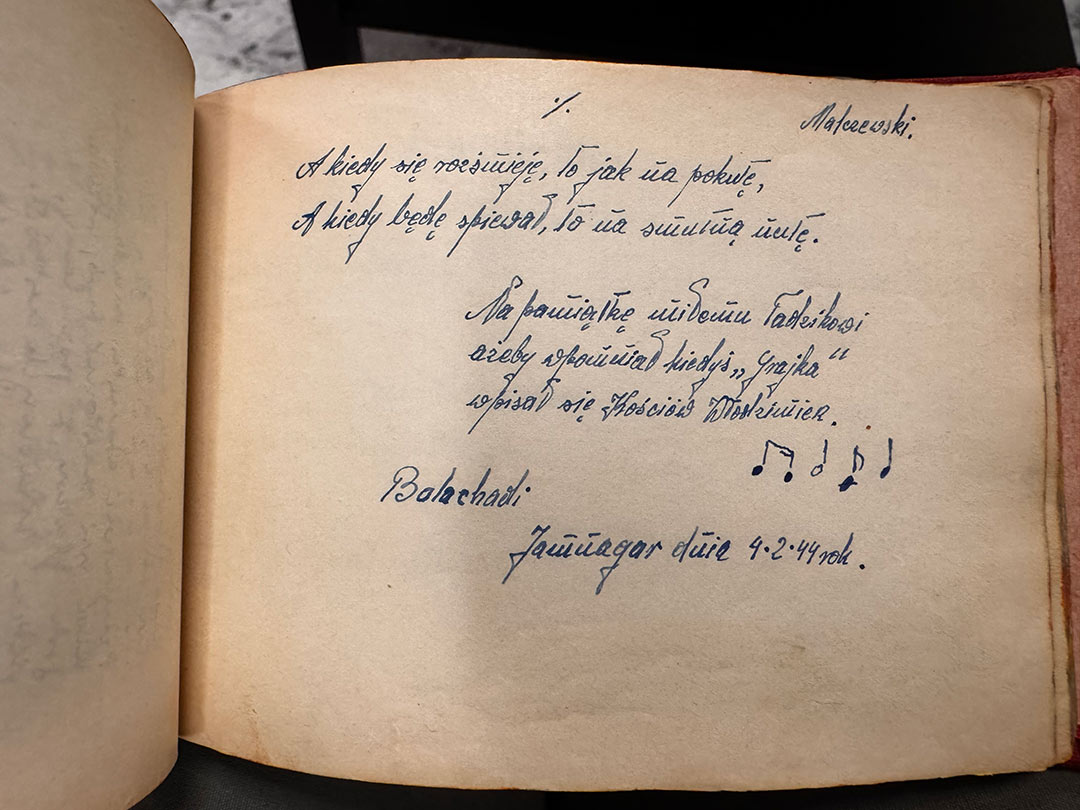 ·/.
Malczewski.
A kiedy się rośśmieję, to jak na pokutę,
A kiedy będę śpiewał, to na smutną nutę.
Na pamiątkę miłemu Tadzikowi
ażeby wspomniał kiedyś „Grajka“
wpisał się Kościów Włodzimierz.
Balachadi
Jamnagar dnia 4·2·44 rok.